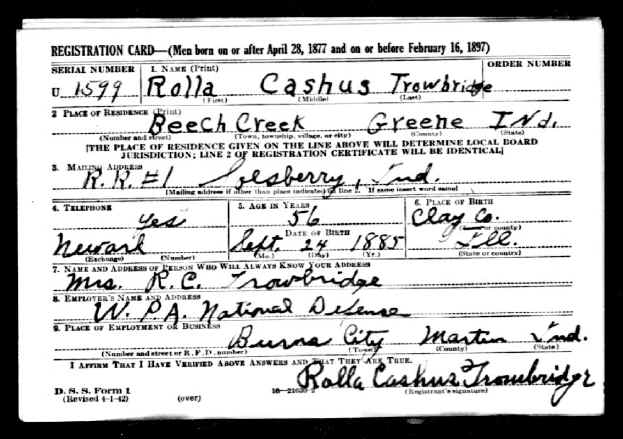 REGISTRATION CARD—(Men born on or after April 28, 1877 and on or before February 16, 1897)
SERIAL NUMBER 1. NAME (Print) ORDER NUMBER
U 1599 Rolla Cashus Trowbridge
(First) (Middle) (Last)
2. PLACE OF RESIDENCE (Print)
Beech Creek Greene Ind.
(Number and street) (Town, township, village, or city) (County) (State)
[THE PLACE OF RESIDENCE GIVEN ON THE LINE ABOVE WILL DETERMINE LOCAL BOARD
JURISDICTION; LINE 2 OF REGISTRATION CERTIFICATE WILL BE IDENTICAL]
3. MAILING ADDRESS
R.R.#1 Solsberry, Ind.
[Mailing address if other than place indicated on line 2. If same insert word same]
4. TELEPHONE 5. AGE IN YEARS 6. PLACE OF BIRTH
Yes 56 Clay Co.
DATE OF BIRTH (Town or county)
Newark Sept. 24 1885 Ill.
(Exchange) (Number) (Mo.) (Day) (Yr.) (State or country)
7. NAME AND ADDRESS OF PERSON WHO WILL ALWAYS KNOW YOUR ADDRESS
Mrs. R.C. Trowbridge
8. EMPLOYER'S NAME AND ADDRESS
W.P.A. National Defense
9. PLACE OF EMPLOYMENT OR BUSINESS
Burns City Martin Ind.
(Number and street or R. F. D. number) (Town) (County) (State)
I AFFIRM THAT I HAVE VERIFIED ABOVE ANSWERS AND THAT THEY ARE TRUE.
Rolla Cashus Trowbridge
D. S. S. Form 1 (Registrant's signature)
(Revised 4-1-42) (over)